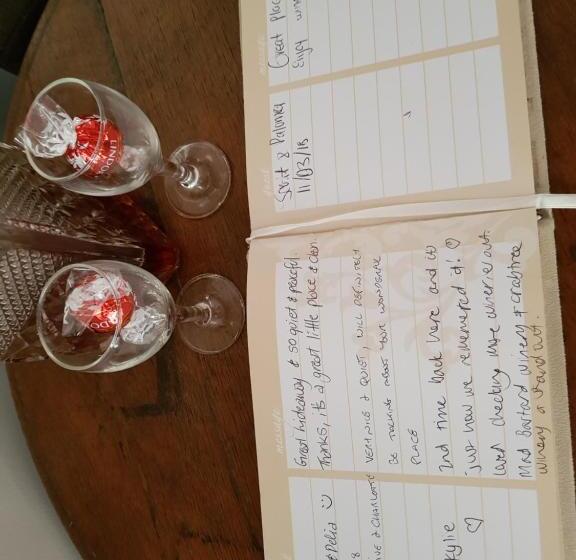 message
Great Plac
Enjoy win
guest
Scott & Palomka
11/03/18
message
Great hideaway & so quiet & peaceful.
Thanks, it's a great little place & clean.
VERY NICE & QUIET, WILL DEFINITELY
BE TALKING ABOUT YOUR WONDERFUL
PLACE
2nd time back here and it's
just how we remembered it! ♡
Loved checking more wineries out.
Mad Bastard winery & Crabtree
winery a stand out.
& Delia ☺
8
IVE & CHARLOTTE
Kylie
♡
LINDOR
LINDOR